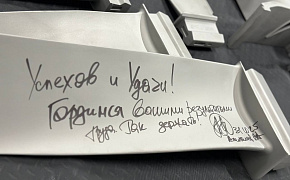 Успехов и Удачи!
Гордимся Вашими результатами
труда. Так держать!